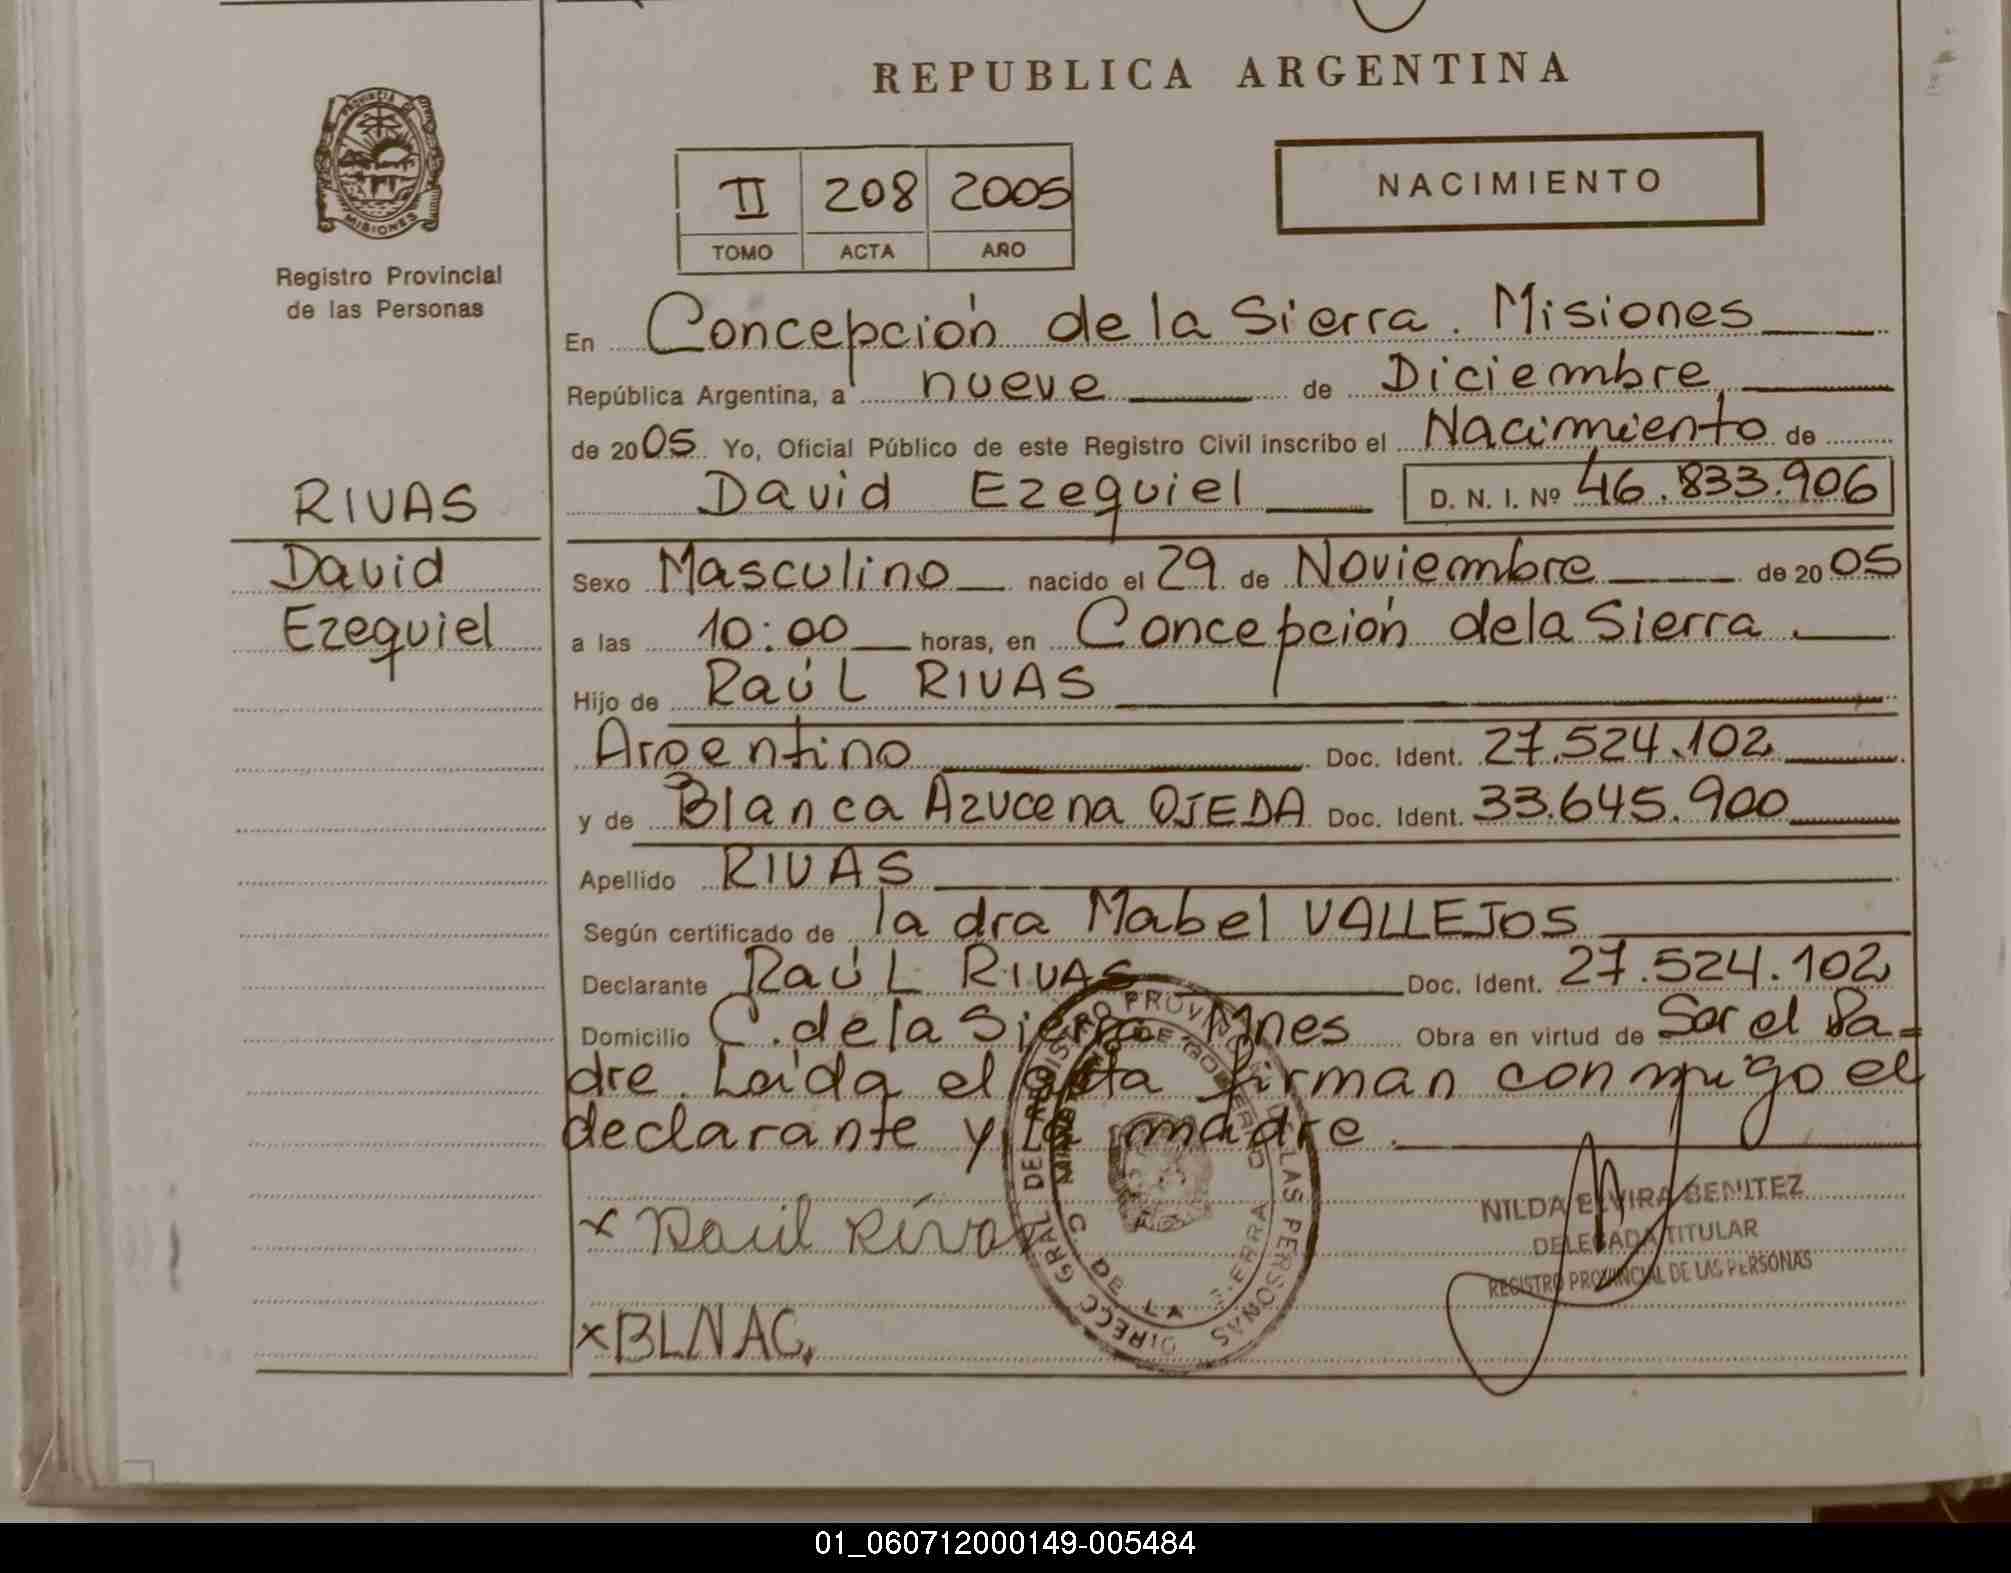 REPUBLICA ARGENTINA
PROVINCIA DE
MISIONES
Registro Provincial
de las Personas
II 208 2005
TOMO ACTA AÑO
NACIMIENTO
En Concepción de la Sierra. Misiones
República Argentina, a nueve de Diciembre
de 2005 Yo, Oficial Público de este Registro Civil inscribo el Nacimiento de
David Ezequiel D. N. I. Nº 46.833.906
RIVAS
David
Ezequiel
Sexo Masculino nacido el 29 de Noviembre de 2005
a las 10:00 horas, en Concepción de la Sierra.
Hijo de Raúl RIVAS
Argentino Doc. Ident. 27.524.102
y de Blanca Azucena OJEDA Doc. Ident. 33.645.900
Apellido RIVAS
Según certificado de la dra Mabel VALLEJOS
Declarante Raúl RIVAS Doc. Ident. 27.524.102
Domicilio C. de la Sierra Mnes Obra en virtud de Ser el Pa-
dre. Leída el acta firman conmigo el
declarante y la madre.
x Raúl Rivas
x BLNAC.
DIRECC GRAL DEL REGISTRO PROVINCIAL DE LAS PERSONAS
MINISTERIO DE GOBIERNO
C DE LA SIERRA
NILDA ELVIRA BENITEZ
DELEGADA TITULAR
REGISTRO PROVINCIAL DE LAS PERSONAS
01_060712000149-005484